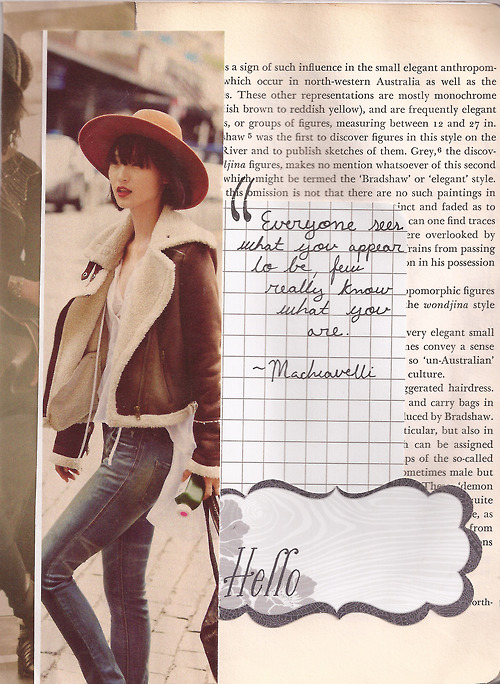 s a sign of such influence in the small elegant anthropom-
which occur in north-western Australia as well as the
s. These other representations are mostly monochrome
ish brown to reddish yellow), and are frequently elegant
s, or groups of figures, measuring between 12 and 27 in.
haw 5 was the first to discover figures in this style on the
River and to publish sketches of them. Grey,6 the discov-
djina figures, makes no mention whatsoever of this second
which might be termed the 'Bradshaw' or 'elegant' style.
this omission is not that there are no such paintings in
inct and faded as to
can one find traces
ere overlooked by
rains from passing
on in his possession
opomorphic figures
he wondjina style
very elegant small
nes convey a sense
so 'un-Australian'
culture.
ggerated hairdress.
and carry bags in
luced by Bradshaw.
ticular, but also in
h can be assigned
ps of the so-called
ometimes male but
'demon
quite
e, as
from
ns
worth-
“ Everyone sees
what you appear
to be, few
really know
what you
are.
~Machiavelli
Hello